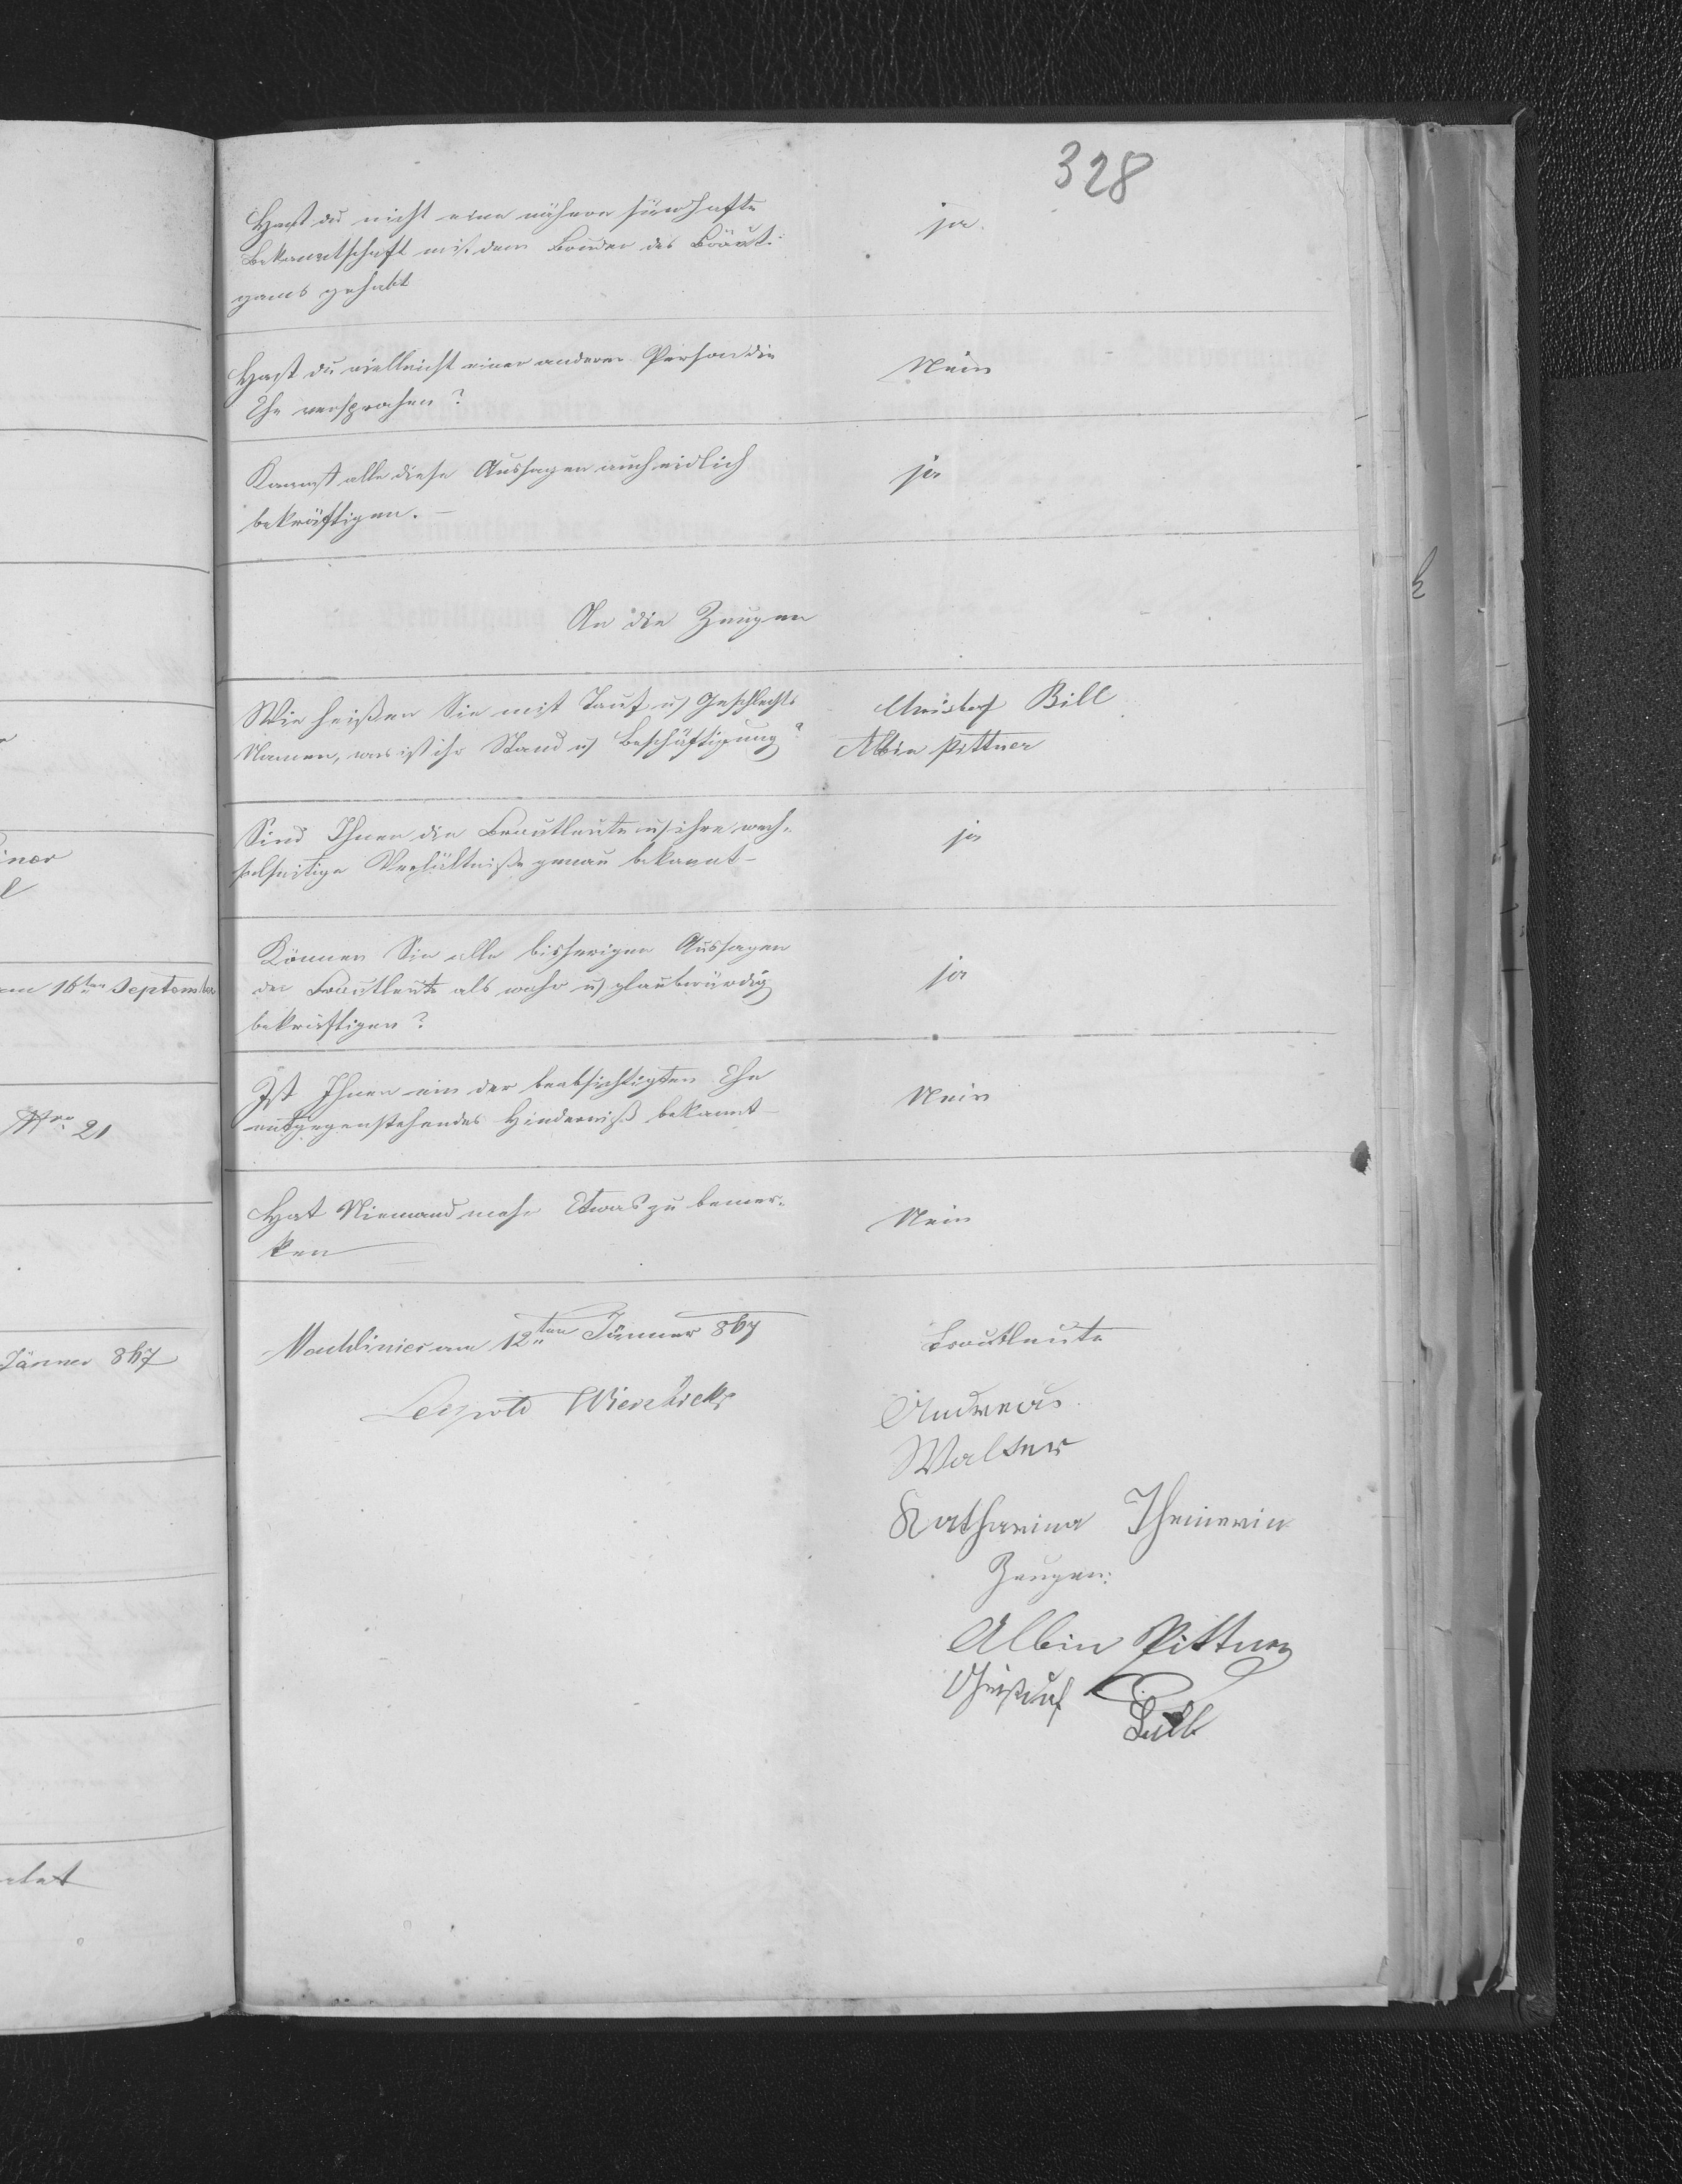 328
Hast du nicht eine nähere sündhafte
Bekanntschaft mit dem Bruder des Bräuti-
gams gehabt
ja.
Hast du vielleicht einer anderen Person die
Ehe versprochen?
Nein
Kannst alle diese Aussagen auch eidlich
bekräftigen. –
ja
An die Zeugen
Wie heißen Sie mit Tauf u Geschlechts
Namen, was ist ihr Stand u Beschäftigung?
Christof Bill
Albin Pittner
Sind Ihnen die Brautleute u ihre wech-
selseitige Verhältniße genau bekannt –
ja
Können Sie alle bisherigen Aussagen
der Brautleute als wahr u glaubwürdig
bekräftigen?
ja
Ist Ihnen ein der beabsichtigten Ehe
entgegenstehendes Hinderniß bekannt –
Nein
Hat Niemand mehr Etwas zu bemer-
ken
Nein
am 12ten Jänner 867
Leopold
Brautleute
Andreas
Walter
Katharina Theinerin
Zeugen:
Albin Pittner
Christof
Bill
am 16ten September
Nro 21
Jänner 867